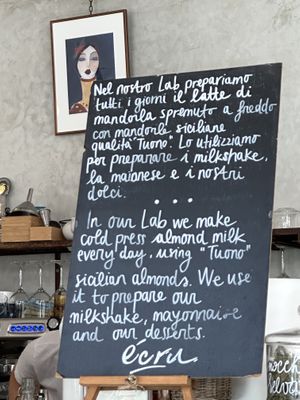 Nel nostro Lab prepariamo
tutti i giorni il latte di
mandorla spremuto a freddo
con mandorle siciliane
qualità "Tuono". Lo utilizziamo
per preparare i milkshake,
la maionese e i nostri
dolci.
...
In our Lab we make
cold press almond milk
every day, using "Tuono"
sicilian almonds. We use
it to prepare our
milkshake, mayonnaise
and our desserts.
ecru